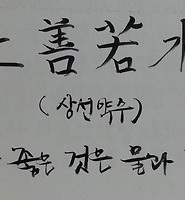 善若
(상선약수)
좋은 것은 물과